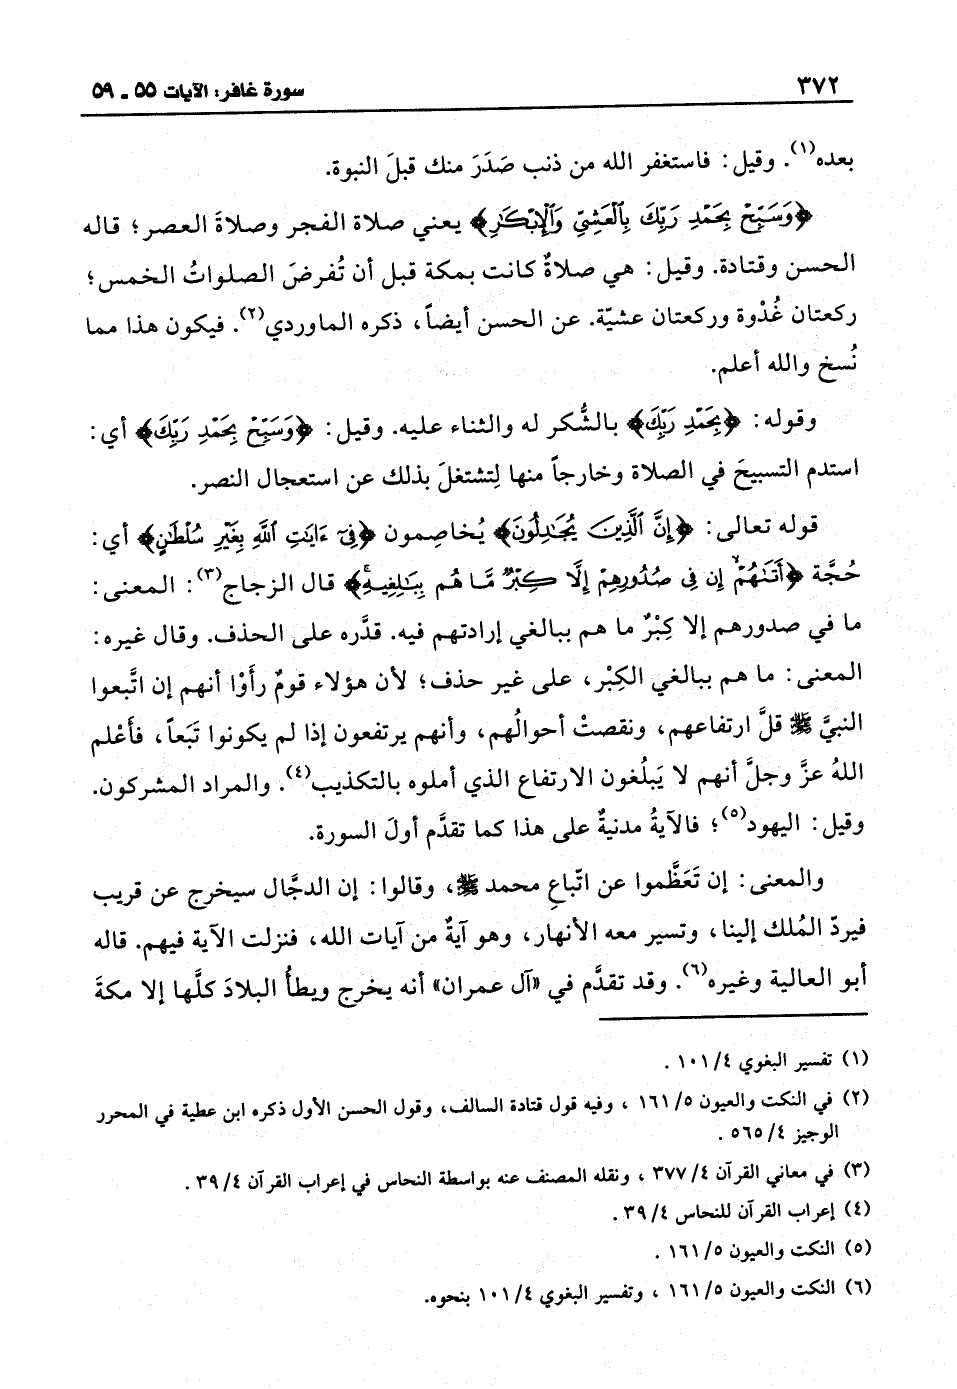 ٣٧٢
سورة غافر: الآيات ٥٥ ـ ٥٩
بعده(١). وقيل: فاستغفر الله من ذنب صَدَرَ منك قبلَ النبوة.
﴿وَسَبِّحْ بِحَمْدِ رَبِّكَ بِالْعَشِيِّ وَالْإِبْكَارِ﴾ يعني صلاة الفجر وصلاةَ العصر؛ قاله
الحسن وقتادة. وقيل: هي صلاةٌ كانت بمكة قبل أن تُفرضَ الصلواتُ الخمس؛
ركعتان غُدْوة وركعتان عشيّة. عن الحسن أيضاً، ذكره الماوردي(٢). فيكون هذا مما
نُسخ والله أعلم.
وقوله: ﴿بِحَمْدِ رَبِّكَ﴾ بالشُّكر له والثناء عليه. وقيل: ﴿وَسَبِّحْ بِحَمْدِ رَبِّكَ﴾ أي:
استدم التسبيحَ في الصلاة وخارجاً منها لِتشتغلَ بذلك عن استعجال النصر.
قوله تعالى: ﴿إِنَّ ٱلَّذِينَ يُجَٰدِلُونَ﴾ يُخاصِمون ﴿فِيٓ ءَايَٰتِ ٱللَّهِ بِغَيْرِ سُلْطَٰنٍ﴾ أي:
حُجَّة ﴿أَتَىٰهُمْ ۙ إِن فِي صُدُورِهِمْ إِلَّا كِبْرٌ مَّا هُم بِبَٰلِغِيهِ ۚ﴾ قال الزجاج(٣): المعنى:
ما في صدورهم إلا كِبْرٌ ما هم ببالغي إرادتهم فيه. قدَّره على الحذف. وقال غيره:
المعنى: ما هم ببالغي الكِبْر، على غير حذف؛ لأن هؤلاء قومٌ رأَوْا أنهم إن اتَّبعوا
النبيَّ ﷺ قلَّ ارتفاعهم، ونقصتْ أحوالُهم، وأنهم يرتفعون إذا لم يكونوا تَبَعاً، فأَعْلم
اللهُ عزَّ وجلَّ أنهم لا يَبلُغون الارتفاع الذي أملوه بالتكذيب(٤). والمراد المشركون.
وقيل: اليهود(٥)؛ فالآيةُ مدنيةٌ على هذا كما تقدَّم أولَ السورة.
والمعنى: إن تَعَظَّموا عن اتّباعِ محمد ﷺ، وقالوا: إن الدجَّال سيخرج عن قريب
فيردّ المُلك إلينا، وتسير معه الأنهار، وهو آيةٌ من آيات الله، فنزلت الآية فيهم. قاله
أبو العالية وغيره(٦). وقد تقدَّم في «آل عمران» أنه يخرج ويطأُ البلادَ كلَّها إلا مكةَ
(١) تفسير البغوي ٤/ ١٠١ .
(٢) في النكت والعيون ٥/ ١٦١ ، وفيه قول قتادة السالف، وقول الحسن الأول ذكره ابن عطية في المحرر
الوجيز ٤/ ٥٦٥ .
(٣) في معاني القرآن ٤/ ٣٧٧ ، ونقله المصنف عنه بواسطة النحاس في إعراب القرآن ٤/ ٣٩ .
(٤) إعراب القرآن للنحاس ٤/ ٣٩ .
(٥) النكت والعيون ٥/ ١٦١ .
(٦) النكت والعيون ٥/ ١٦١ ، وتفسير البغوي ٤/ ١٠١ بنحوه.